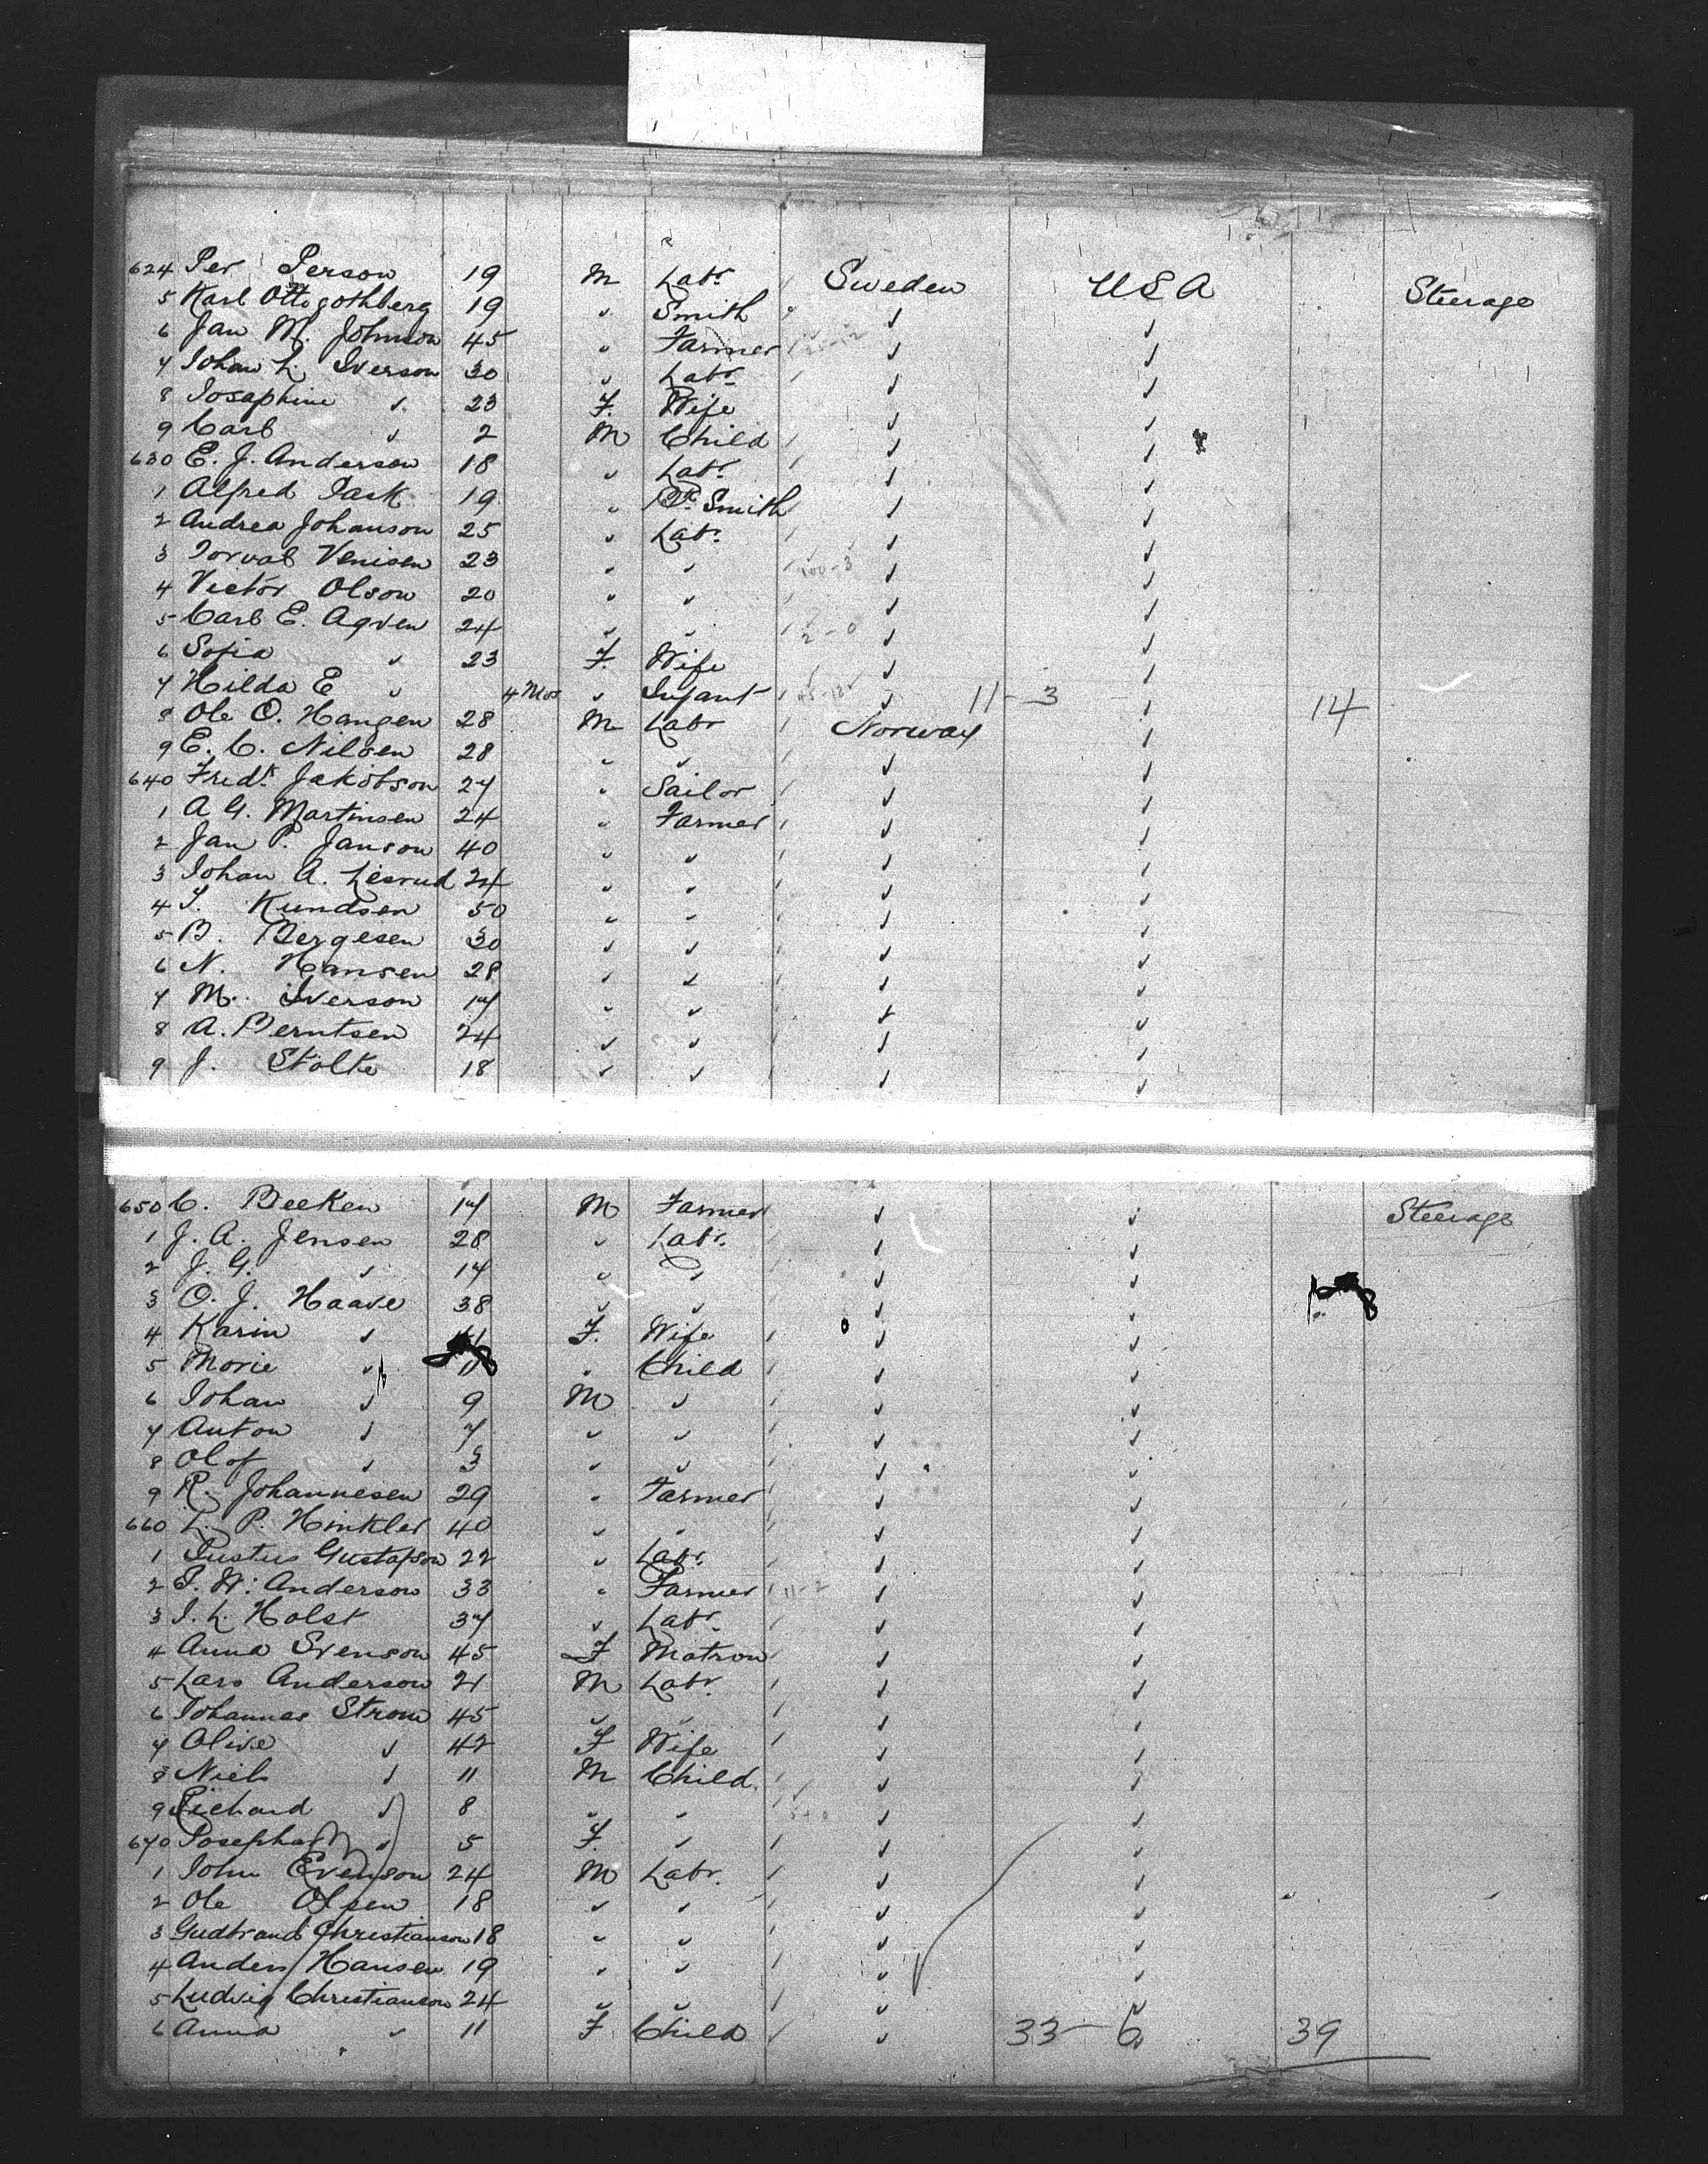 624 Per Person 19 M Labr. Sweden USA Steerage
5 Karl Otto Gothberg 19 " Smith " "
6 Jan M. Johnson 45 " Farmer " "
7 Johan L. Iverson 30 " Labr. " "
8 Josephine " 23 F. Wife " "
9 Carl " 2 M Child " "
630 E. J. Anderson 18 " Labr. " "
1 Alfred 19 " Smith " "
2 Andrea Johanson 25 " Labr. " "
3 Torval Venisen 23 " " " "
4 Victor Olson 20 " " " "
5 Carl E. Agren 24 " " 2-0 " "
6 Sofia " 23 F. Wife " "
7 Hilda E " 4 Mos " Infant " 11-3 " 14
8 Ole O. Haugen 28 M Labr Norway "
9 E. C. Nilsen 28 " " " "
640 Fredk. Jakobson 27 " Sailor " "
1 A G. Martinsen 24 " Farmer " "
2 Jan P. Janson 40 " " " "
3 Johan A. Liesrud 24 " " " "
4 Kundsen 50 " " " "
5 B. Bergesen 30 " " " "
6 N. Hansen 28 " " " "
7 M. Iverson 17 " " " "
8 A. Berntsen 24 " " " "
9 J. Stolte 18 " " " "
650 C. Beeken 17 M Farmer " " Steerage
1 J. A. Jensen 28 " Labr. " "
2 J. G. " 17 " " " "
3 O. J. Haave 38 " " " "
4 Karin " 41 F. Wife " "
5 Morie " 11 " Child " "
6 Johan " 9 M " " "
7 Anton " 7 " " " "
8 Olof " 3 " " " "
9 R. Johannesen 29 " Farmer " "
660 L. P. Hinkler 40 " " " "
1 Justus Gustafson 22 " Labr. " "
2 P. W. Anderson 33 " Farmer 11-2 " "
3 J. L. Holst 37 " Labr. " "
4 Anna Svenson 45 F Matron " "
5 Lars Anderson 21 M Labr. " "
6 Johannes Strom 45 " " " "
7 Olive " 42 F Wife " "
8 Niels " 11 M Child. " "
9 Richard " 8 " " " "
670 Josepha " 5 F. " " "
1 John Evenson 24 M Labr. " "
2 Ole Olsen 18 " " " "
3 Gudbrand Christianson 18 " " " "
4 Anders Hansen 19 " " " "
5 Ludvig Christianson 24 " " " "
6 Anna " 11 F Child " 33-6 " 39